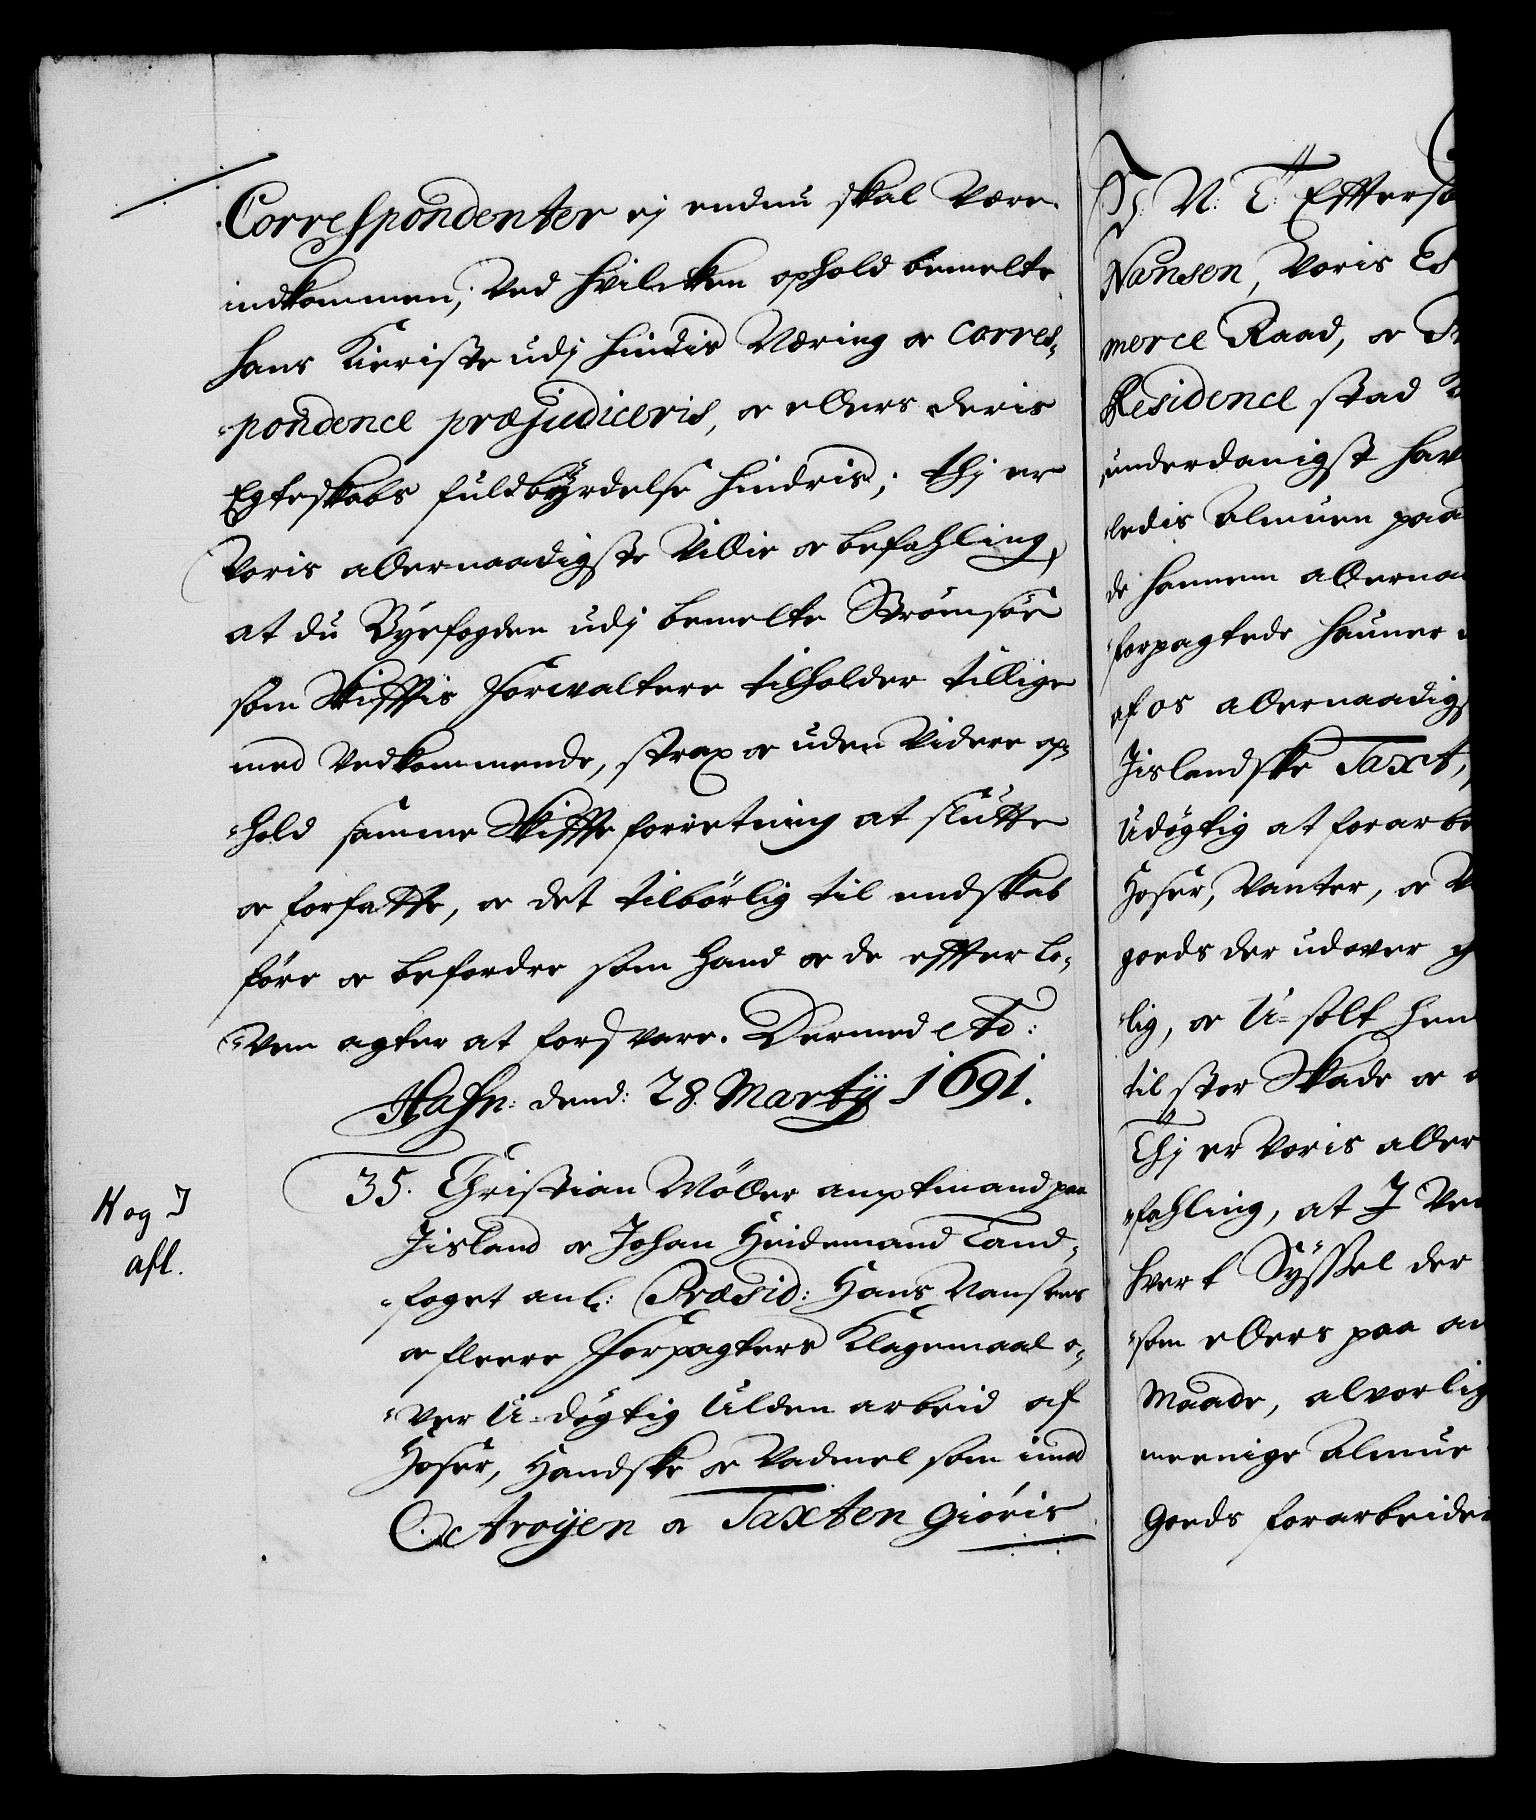 Correspondenter ej endnu skal Være
indkommen, Ved hvilcken ophold bemelte
hans Kieriste udj hindis Næring oc Corres-
pondence præjudiceris, oc ellers deris
Egteskabs fuldbÿrdelse hindris; thj er
Voris allernaadigste Villie oc befahling,
at du Byefogden udj bemelte Strömsöe
som Skifftis Forwaltere tilholder tillige
med Vedkommende, strax oc uden Videre op-
hold samme Skiffteforretning at slutte
oc forfatte, oc det tilbörlig til endskab
före oc befordre som hand oc de effter Lo-
ven agter at forsvare. Dermed etc:
Hafn: dend: 28. Martij 1691.
35. Christian Möller amptmand paa
Jisland oc Johan Heidemand Land-
foget anl: Præsid: Hans Nansens
oc fleere Forpagters Klagemaal o-
ver U-dögtig Ulden arbeid af
Hoser, Handske oc Vadmel som imod
Octroÿen oc Taxten giöris
H og I
afl.
C: V: T: Effterso
Nansen, Voris Es
merce Raad, oc
Residence stad
underdanigst hav
ledis Almuen paa
de hannem allerna
forpagtede hauner
af os allernaadigs
Jislandske Taxt,
Udögtig at forarbe
Hoser, Vanter, oc
goeds der udover
lig, oc U-solt hen
til stor Skade oc
Thj er Voris aller
fahling, at I Ved
hvert Sÿssel der
som ellers paa an
Maade, alvorlig
meenige Almue
Goeds forarbeider